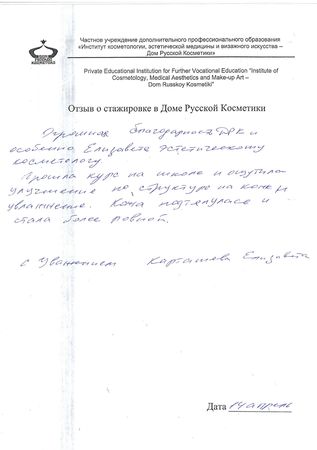 Частное учреждение дополнительного профессионального образования
«Институт косметологии, эстетической медицины и визажного искусства –
Дом Русской Косметики»
Private Educational Institution for Further Vocational Education "Institute of
Cosmetology, Medical Aesthetics and Make-up Art –
Dom Russkoy Kosmetiki"
Отзыв о стажировке в Доме Русской Косметики
Огромная благодарность ДРК и
особенно Елизавете эстетическому
косметологу.
Прошла курс на школе и ощутила
улучшение по структуре на коже и
увлажнение. Кожа подтянулась и
стала более ровной.
с Уважением Карташева Елизавета
Дата 14 апрель